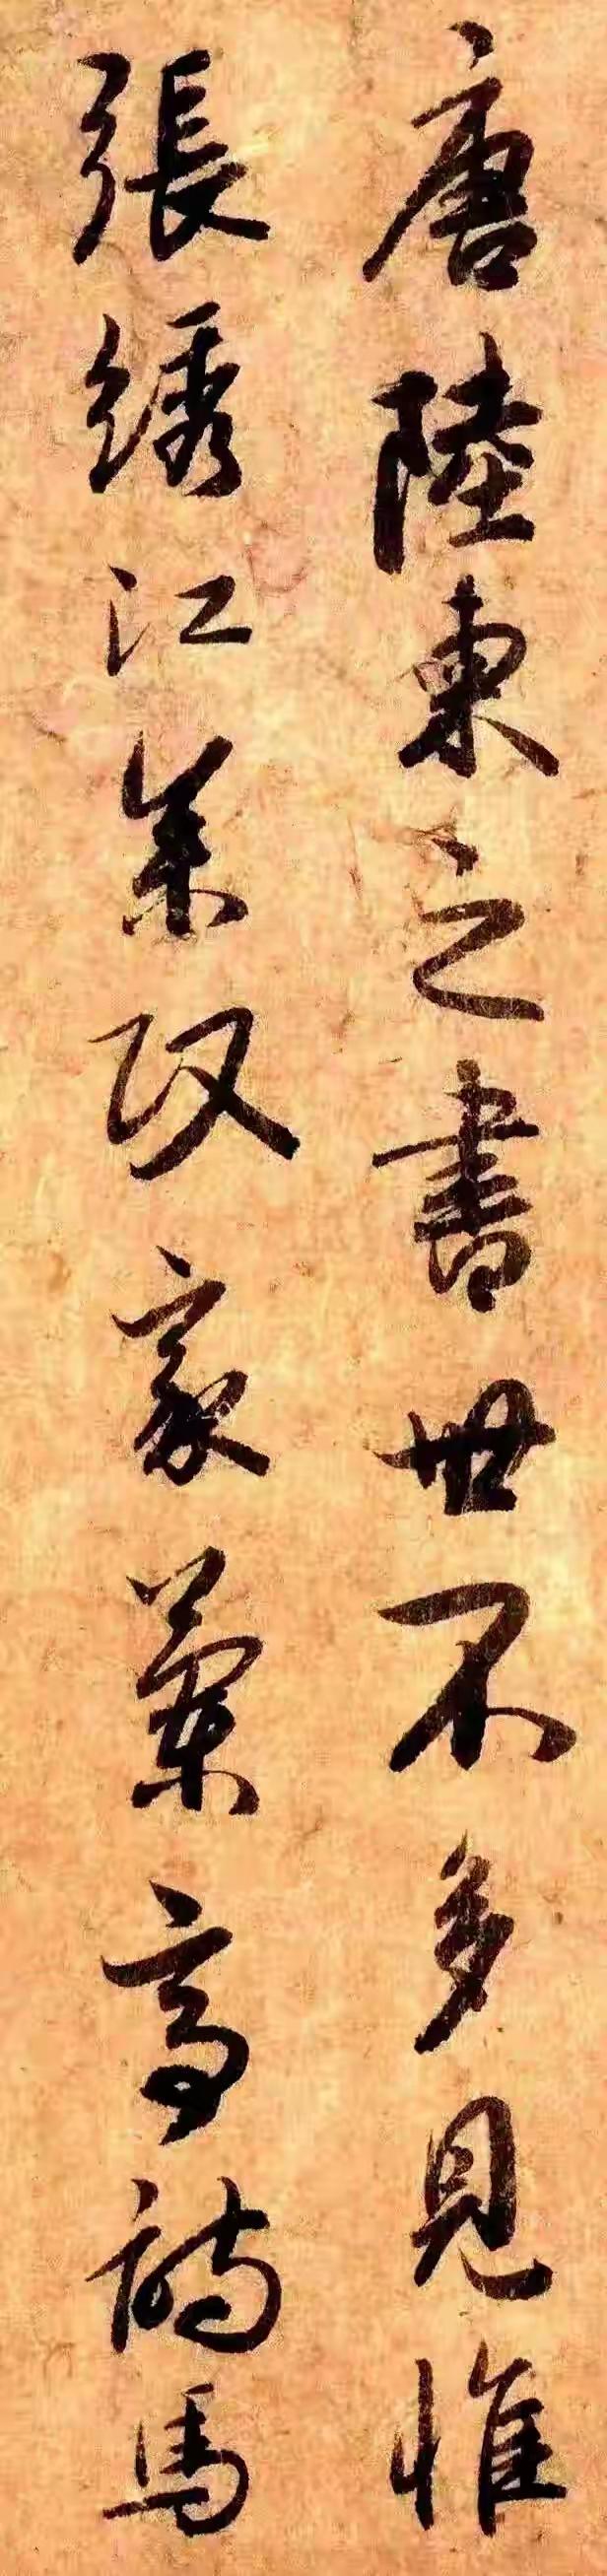 唐陸柬之書世不多見惟
張繡江参政家蘭亭詩馬